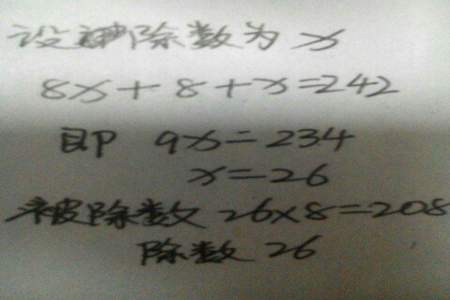 设除数为 x
8x+8+x=242
即 9x=234
x=26
被除数 26×8=208
除数 26